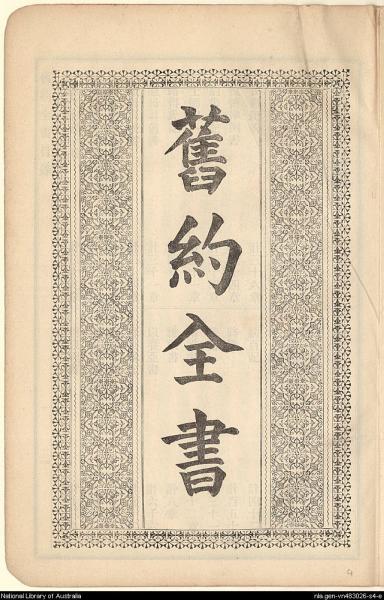 舊約全書
9
National Library of Australia
nla.gen-vn483026-s4-e